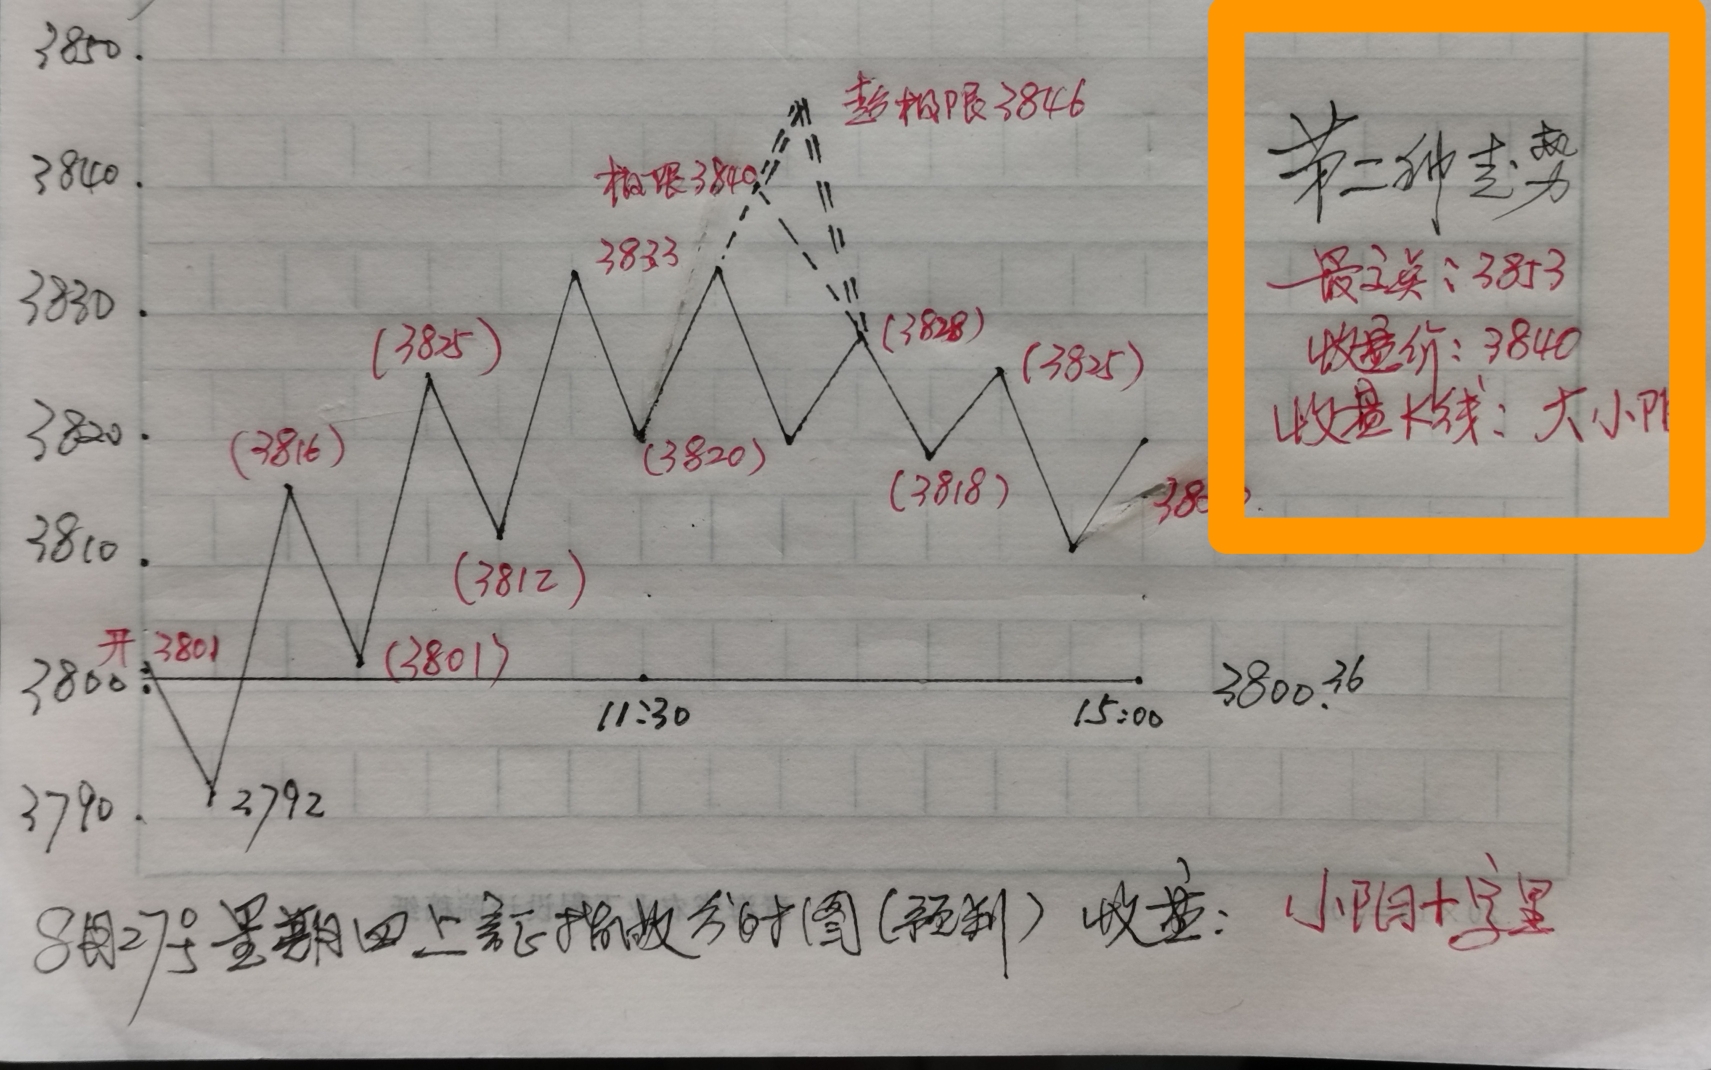 3850
超极限3846
3840
极限3840
3833
3830
(3825)
(3828)
(3825)
3820
(3816)
(3820)
(3818)
3810
(3812)
开3801
(3801)
3800
11:30
15:00
3800.36
3790
3792
第二种走势
最高: 3853
收盘价: 3840
收盘K线: 大小阳
8月27号星期四上证指数分时图(预判) 收盘: 小阴十字星